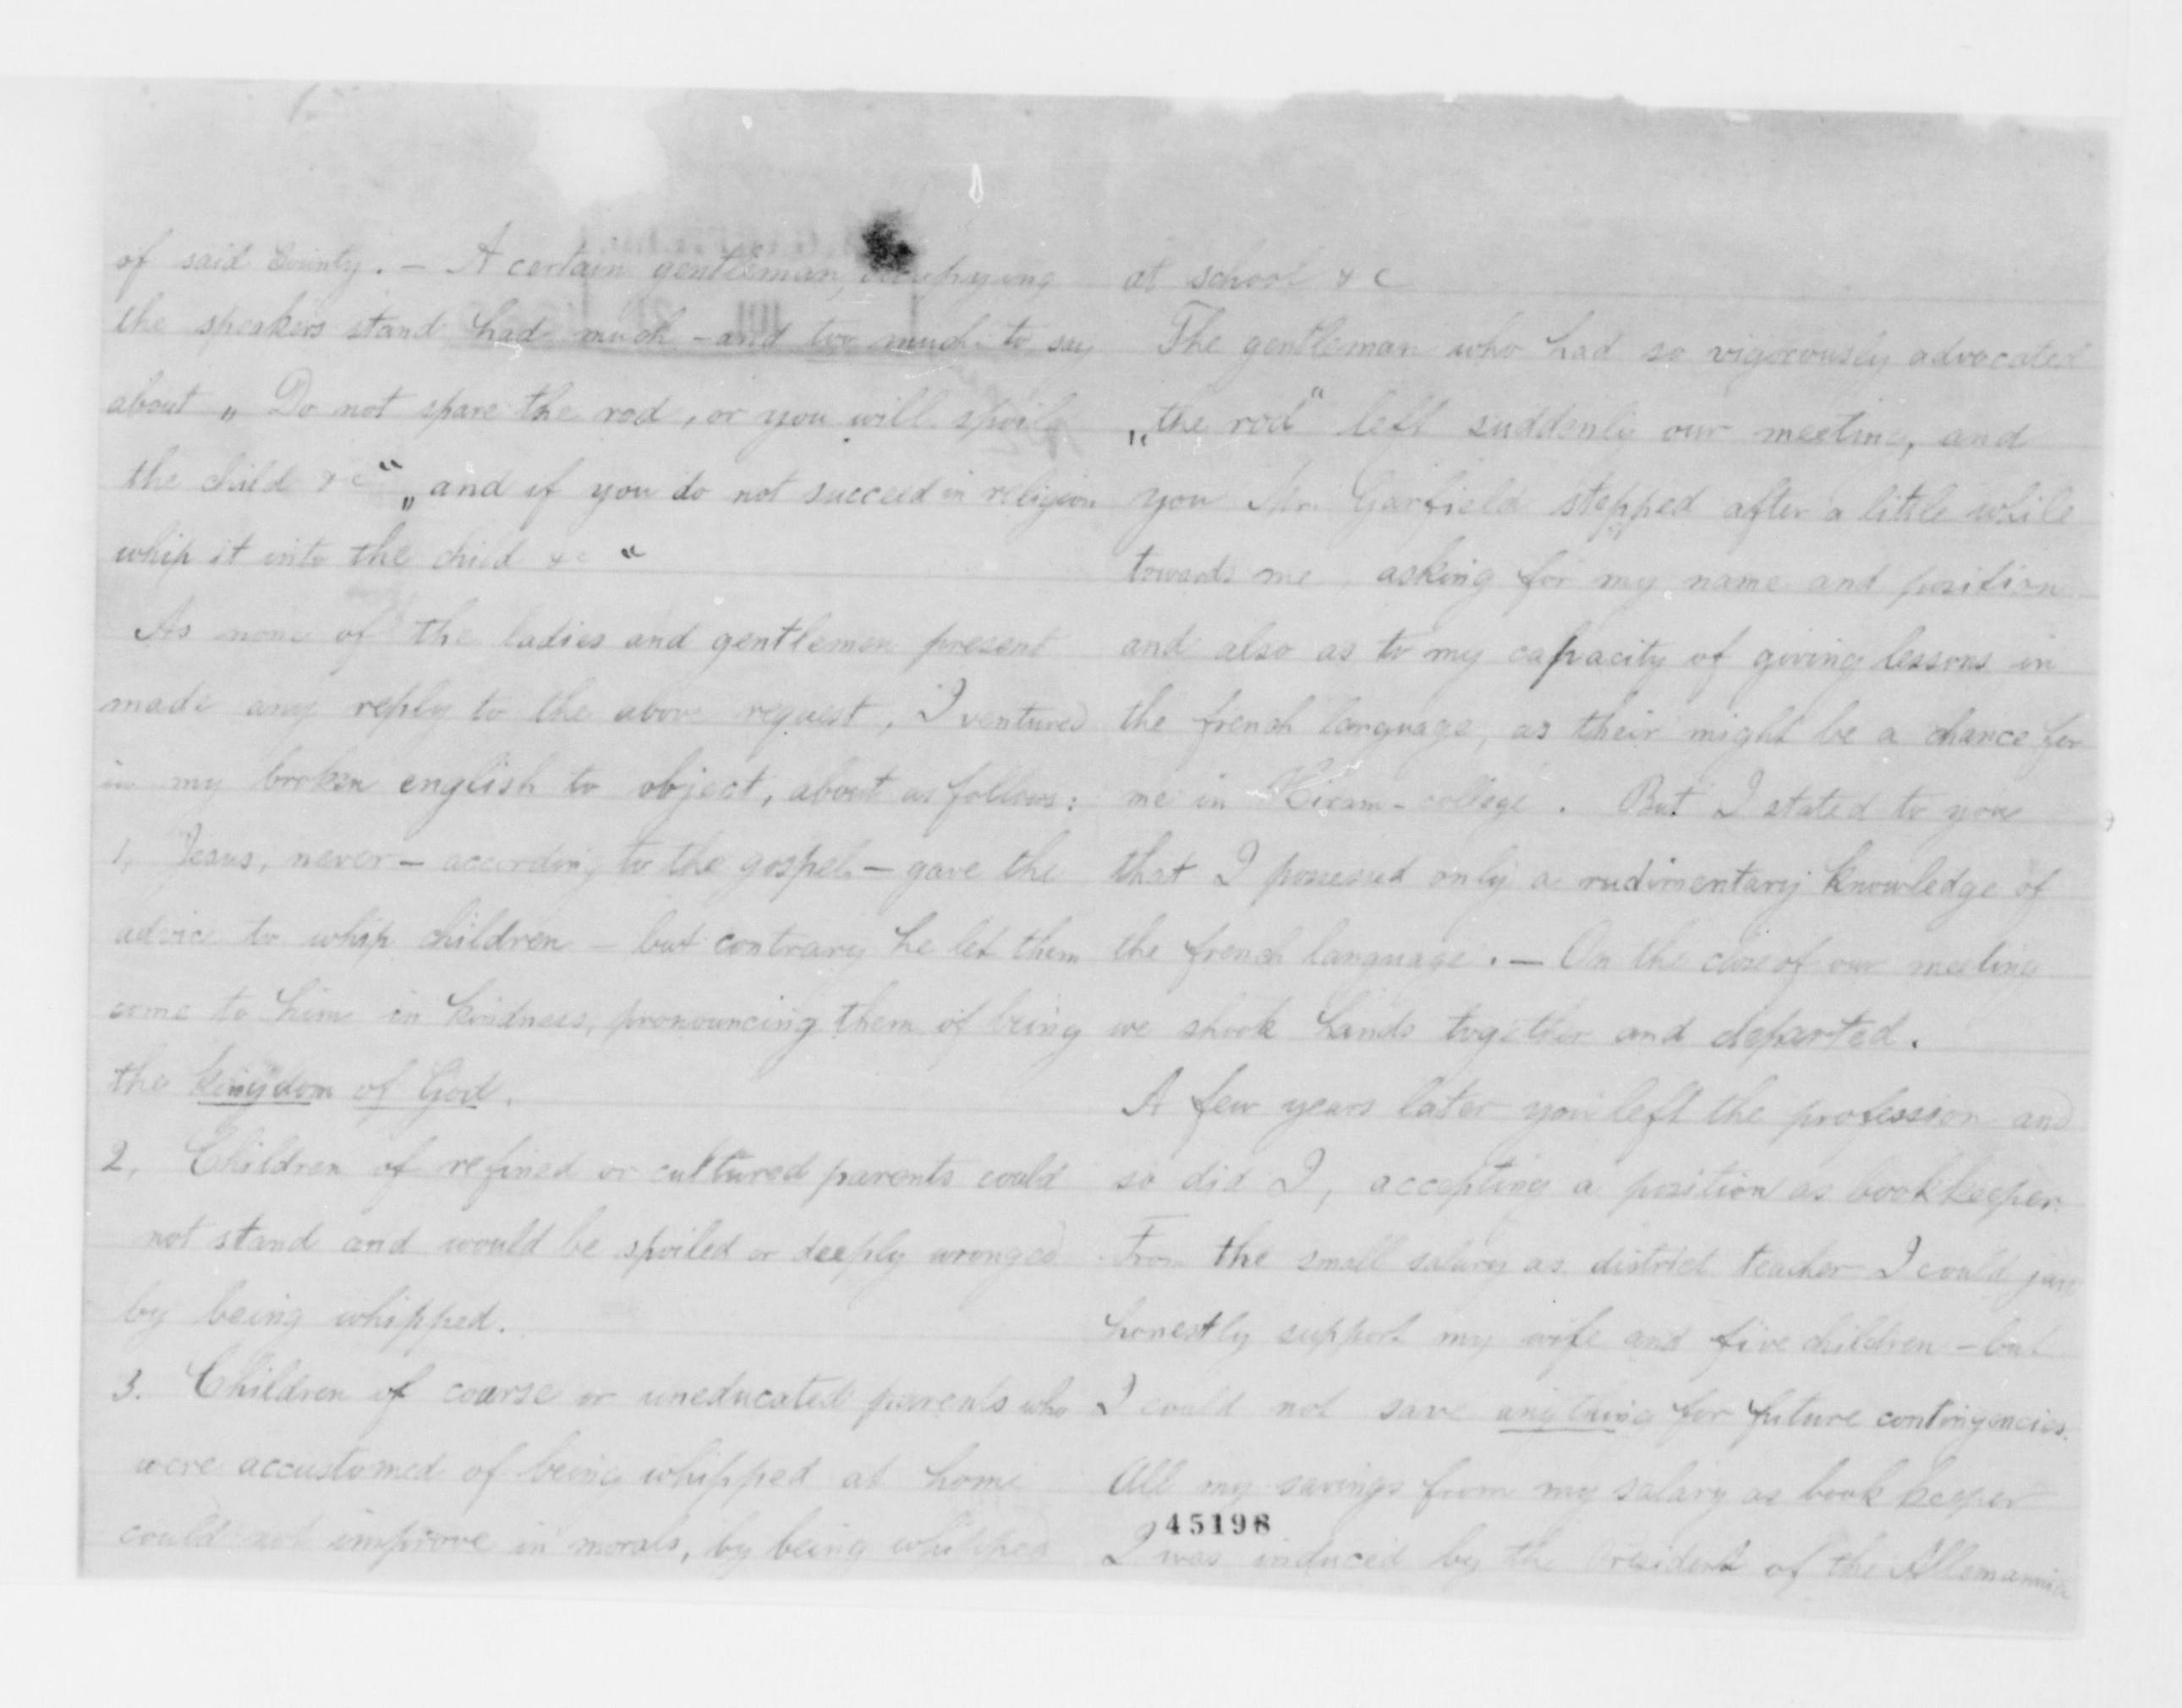 of said County. – A certain gentleman, occupying
the speakers stand had much – and too much to say
about „ Do not spare the rod, or you will spoile
the child &c “ „ and if you do not succeed in religion
whip it into the child &c “
As none of the ladies and gentlemen present
made any reply to the above request, I ventured
in my broken english to object, about as follows:
1, Jesus, never – according to the gospel – gave the
advice to whip children – but contrary he let them
come to him in kindness, pronouncing them of being
the kingdom of God.
2, Children of refined or cultured parents could
not stand and would be spoiled or deeply wronged
by being whipped.
3. Children of coarse or uneducated parents who
were accustomed of being whipped at home
could not improve in morals, by being whipped
at school & c
The gentleman who had so vigorously advocated
„the rod“ left suddenly our meeting, and
you Mr. Garfield stepped after a little while
towards me, asking for my name and position
and also as to my capacity of giving lessons in
the french language, as their might be a chance for
me in Hiram-college. But I stated to you
that I possessed only a rudimentary knowledge of
the french language. – On the close of our meeting
we shook hands together and departed.
A few years later you left the profession and
so did I, accepting a position as bookkeeper.
From the small salary as district teacher I could just
honestly support my wife and five children – but
I could not save anything for future contingencies.
All my savings from my salary as book keeper
45198
I was induced by the President of the Allemannia